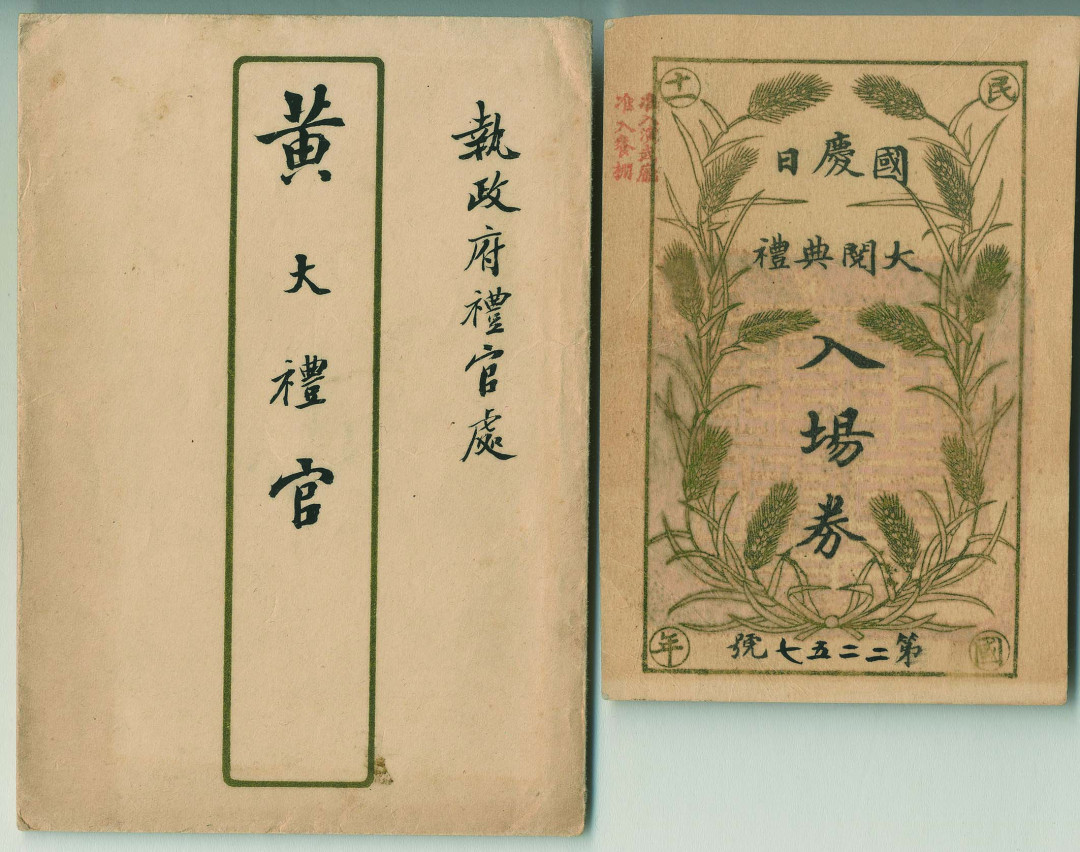 執政府禮官處
黃大禮官
民國十一年
國慶日
大閱典禮
入場券
第二二五七號
准入演武廳
准入餐棚